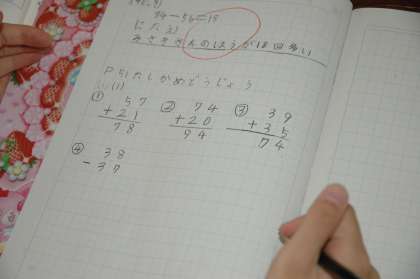 74-56=18
(こたえ)
みさきさんのほうが18回多い
P51たしかめどうじょう
(1)
① 57 ② 74 ③ 39
+21 +20 +35
78 94 74
④ 38
-37